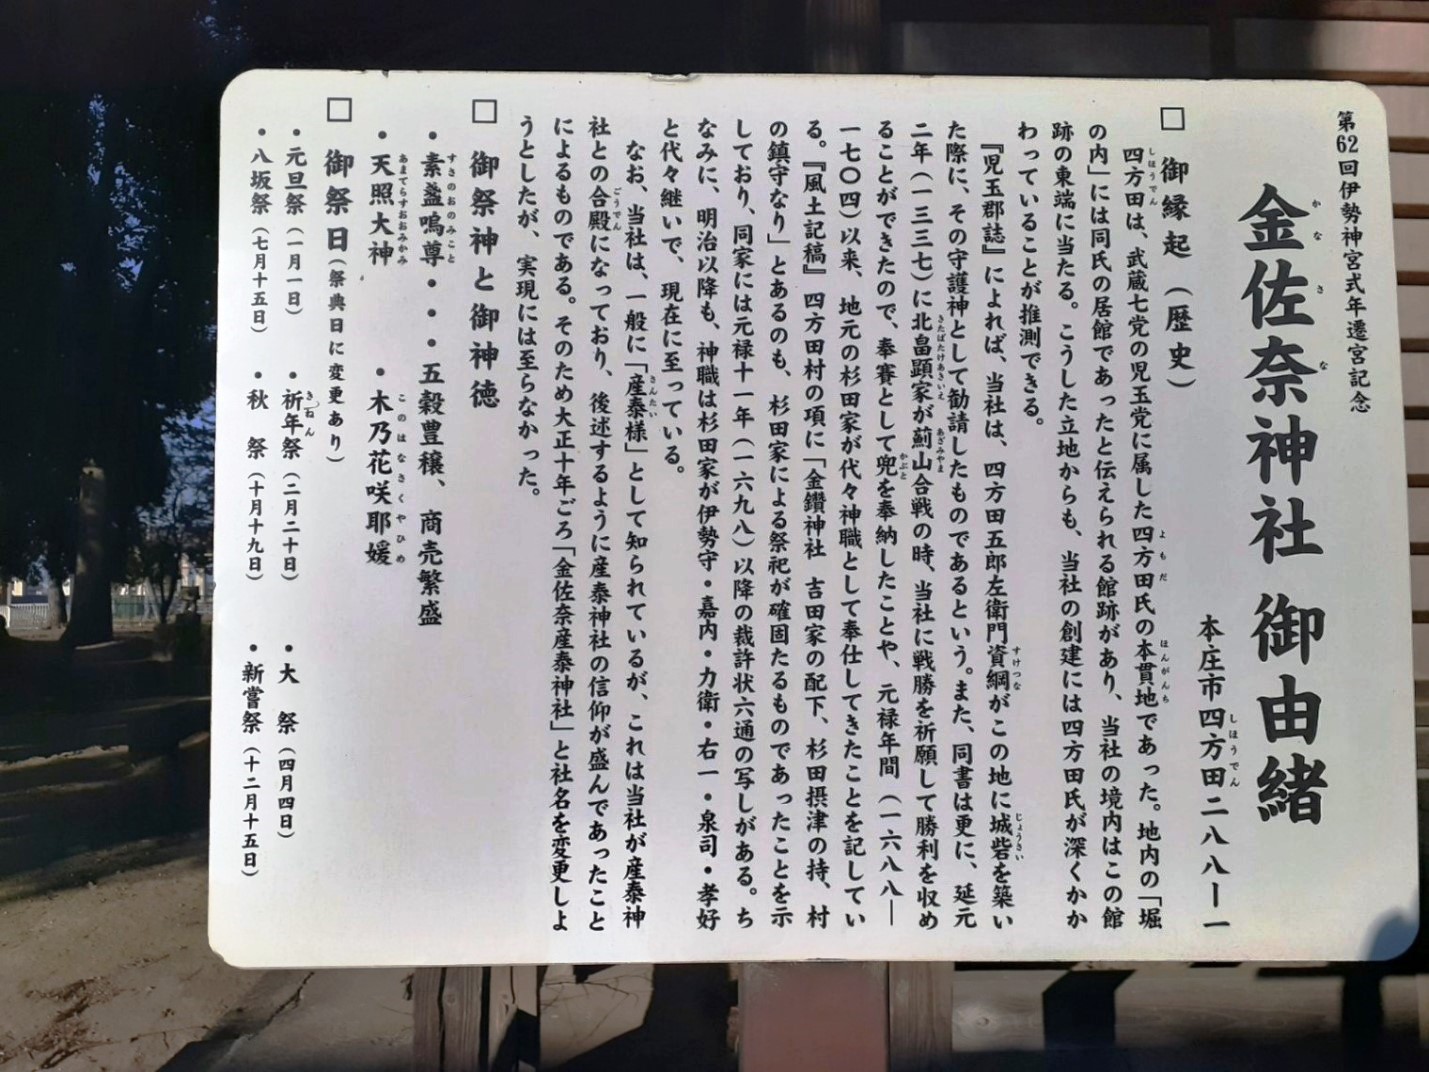 第62回伊勢神宮式年遷宮記念
金佐奈神社 御由緒
本庄市四方田二八八ー一
□ 御縁起（歴史）
四方田は、武蔵七党の児玉党に属した四方田氏の本貫地であった。地内の「堀
の内」には同氏の居館であったと伝えられる館跡があり、当社の境内はこの館
跡の東端に当たる。こうした立地からも、当社の創建には四方田氏が深くかか
わっていることが推測できる。
『児玉郡誌』によれば、当社は、四方田五郎左衛門資綱がこの地に城砦を築い
た際に、その守護神として勧請したものであるという。また、同書は更に、延元
二年（一三三七）に北畠顕家が薊山合戦の時、当社に戦勝を祈願して勝利を収め
ることができたので、奉賽として兜を奉納したことや、元禄年間（一六八八ー
一七〇四）以来、地元の杉田家が代々神職として奉仕してきたことを記してい
る。『風土記稿』四方田村の項に「金鑽神社 吉田家の配下、杉田摂津の持、村
の鎮守なり」とあるのも、杉田家による祭祀が確固たるものであったことを示
しており、同家には元禄十一年（一六九八）以降の裁許状六通の写しがある。ち
なみに、明治以降も、神職は杉田家が伊勢守・嘉内・力衛・右一・泉司・孝好
と代々継いで、現在に至っている。
なお、当社は、一般に「産泰様」として知られているが、これは当社が産泰神
社との合殿になっており、後述するように産泰神社の信仰が盛んであったこと
によるものである。そのため大正十年ごろ「金佐奈産泰神社」と社名を変更しよ
うとしたが、実現には至らなかった。
□ 御祭神と御神徳
・素盞嗚尊・・・五穀豊穣、商売繁盛
・天照大神 ・木乃花咲耶媛
□ 御祭日（祭典日に変更あり）
・元旦祭（一月一日） ・祈年祭（二月二十日） ・大 祭（四月四日）
・八坂祭（七月十五日） ・秋 祭（十月十九日） ・新嘗祭（十二月十五日）